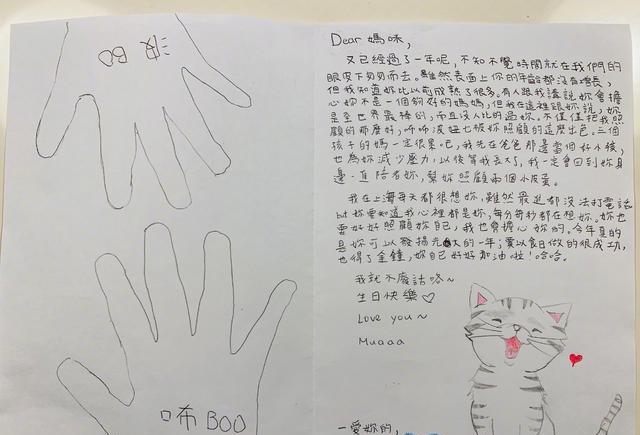 波 BO
咘 BOO
Dear 媽咪，
又已經過了一年呢，不知不覺時間就在我們的
眼皮下匆匆而去。雖然表面上你的年齡都沒增長，
但我知道妳比以前成熟了很多。有人跟我講說妳會擔
心妳不是一個夠好的媽媽，但我在這裡跟妳說，妳
是全世界最棒的，而且沒人比的過妳。不僅僅把我照
顧的那麼好，咘咘波妞也被妳照顧的這麼出色。三個
孩子的媽一定很累吧，我先在爸爸那邊當個好小孩，
也為妳減少壓力，以後等我長大了，我一定會回到妳身
邊一直陪著妳，幫妳照顧兩個小皮蛋。
我在上海每天都很想妳，雖然最近都沒法打電話
but 妳要知道我心裡都是妳，每分每秒都在想妳。妳也
要好好照顧妳自己，我也會擔心妳的。今年真的
是妳可以發揚光大的一年；愛以食日做的很成功，
也得了金鐘，妳自己好好加油啦！哈哈。
我就不廢話咯～
生日快樂♡
Love you～
Muaaa
—愛妳的，